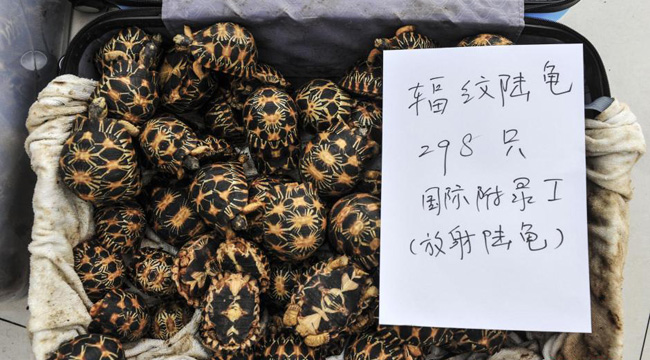 辐纹陆龟
298 只
国际附录I
(放射陆龟)